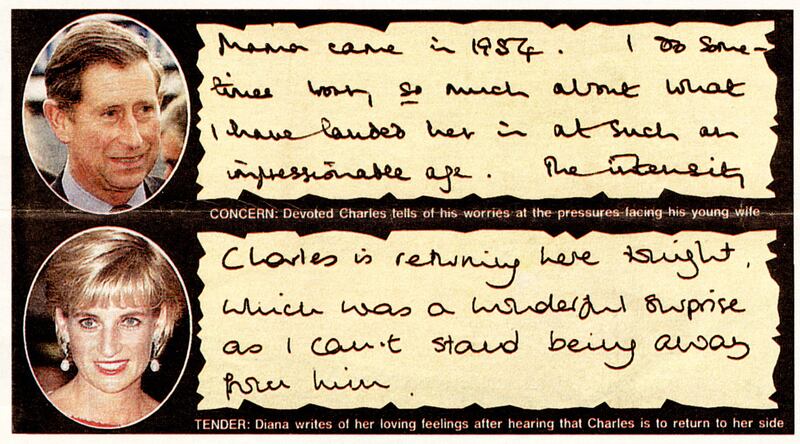 Mama came in 1954. I do some-
times worry so much about what
I have landed her in at such an
impressionable age. The intensity
CONCERN: Devoted Charles tells of his worries at the pressures facing his young wife
Charles is returning here tonight,
which was a wonderful surprise
as I can't stand being away
from him.
TENDER: Diana writes of her loving feelings after hearing that Charles is to return to her side